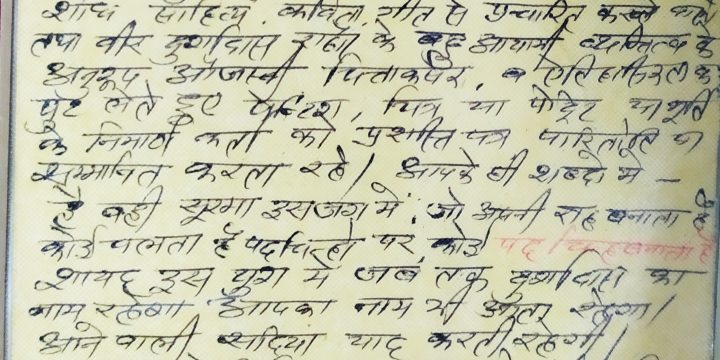 शोध साहित्य, कविता, गीत से प्रचारित करने वाले
तथा वीर दुर्गादास राठौ के बहु आयामी व्यक्तित्व के
अनुरूप ओजस्वी चित्ताकर्षर, व ऐतिहासिरल के
पुट लेते हुए पेन्टिंग, चित्र या पोट्रेट या मूर्ति
के निर्माण कर्ता को प्रशस्ति पत्र पारितोषि
सम्मानित करता रहे। आपके ही शब्दो मे -
है वही सूरमा इस जग में, जो अपनी राह बनाता है
कोई चलता है पदचिन्हो पर कोई पद चिन्ह बनाता है
शायद इस युग में जब तक दुर्गादास का
नाम रहेगा आपका नाम भी अमर रहेगा।
आने वाली सदिया याद करती रहेगी।